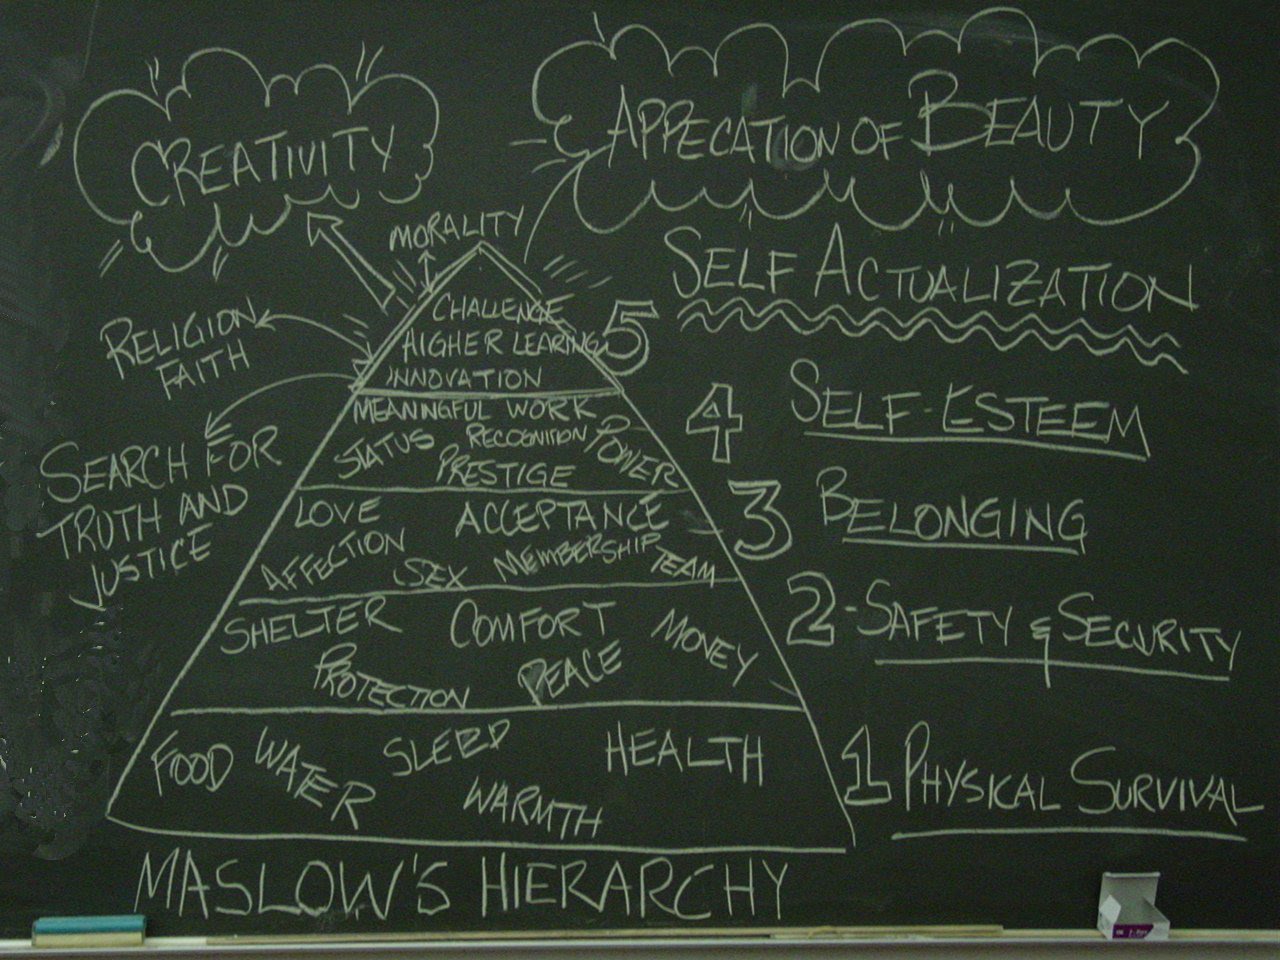 CREATIVITY
APPECATION OF BEAUTY
MORALITY
SELF ACTUALIZATION
RELIGION
FAITH
CHALLENGE
HIGHER LEARING
INNOVATION
5
SEARCH FOR
TRUTH AND
JUSTICE
MEANINGFUL WORK
STATUS RECOGNITION POWER
PRESTIGE
4 SELF-ESTEEM
LOVE ACCEPTANCE
AFFECTION SEX MEMBERSHIP TEAM
3 BELONGING
SHELTER COMFORT MONEY
PROTECTION PEACE
2-SAFETY & SECURITY
FOOD WATER SLEEP HEALTH
WARMTH
1 PHYSICAL SURVIVAL
MASLOW'S HIERARCHY